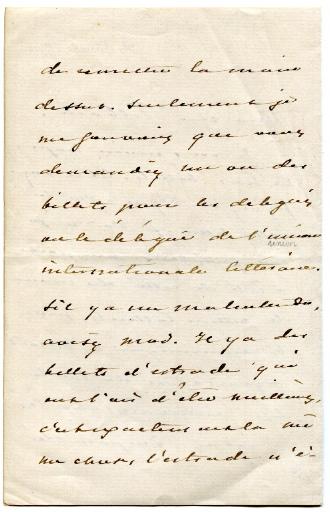 de remettre la main
dessus. Seulement je
me souviens que vous
demandiez un ou des
billets pour les délégués
ou le délégué de l'union
union
internationale littéraire.
S'il y a un malentendu,
avisez moi. Il y a des
billets d'estrade qui
ont l'air d'être meilleurs,
c'est exactement la mê
me chose, l'estrade n'é-